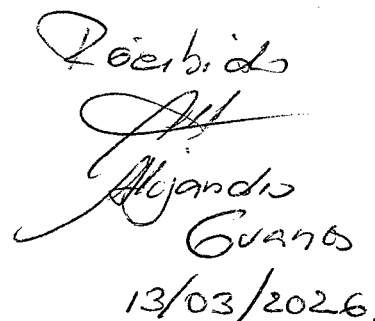 Recibido
Alejandro
Guanos
13/03/2026.